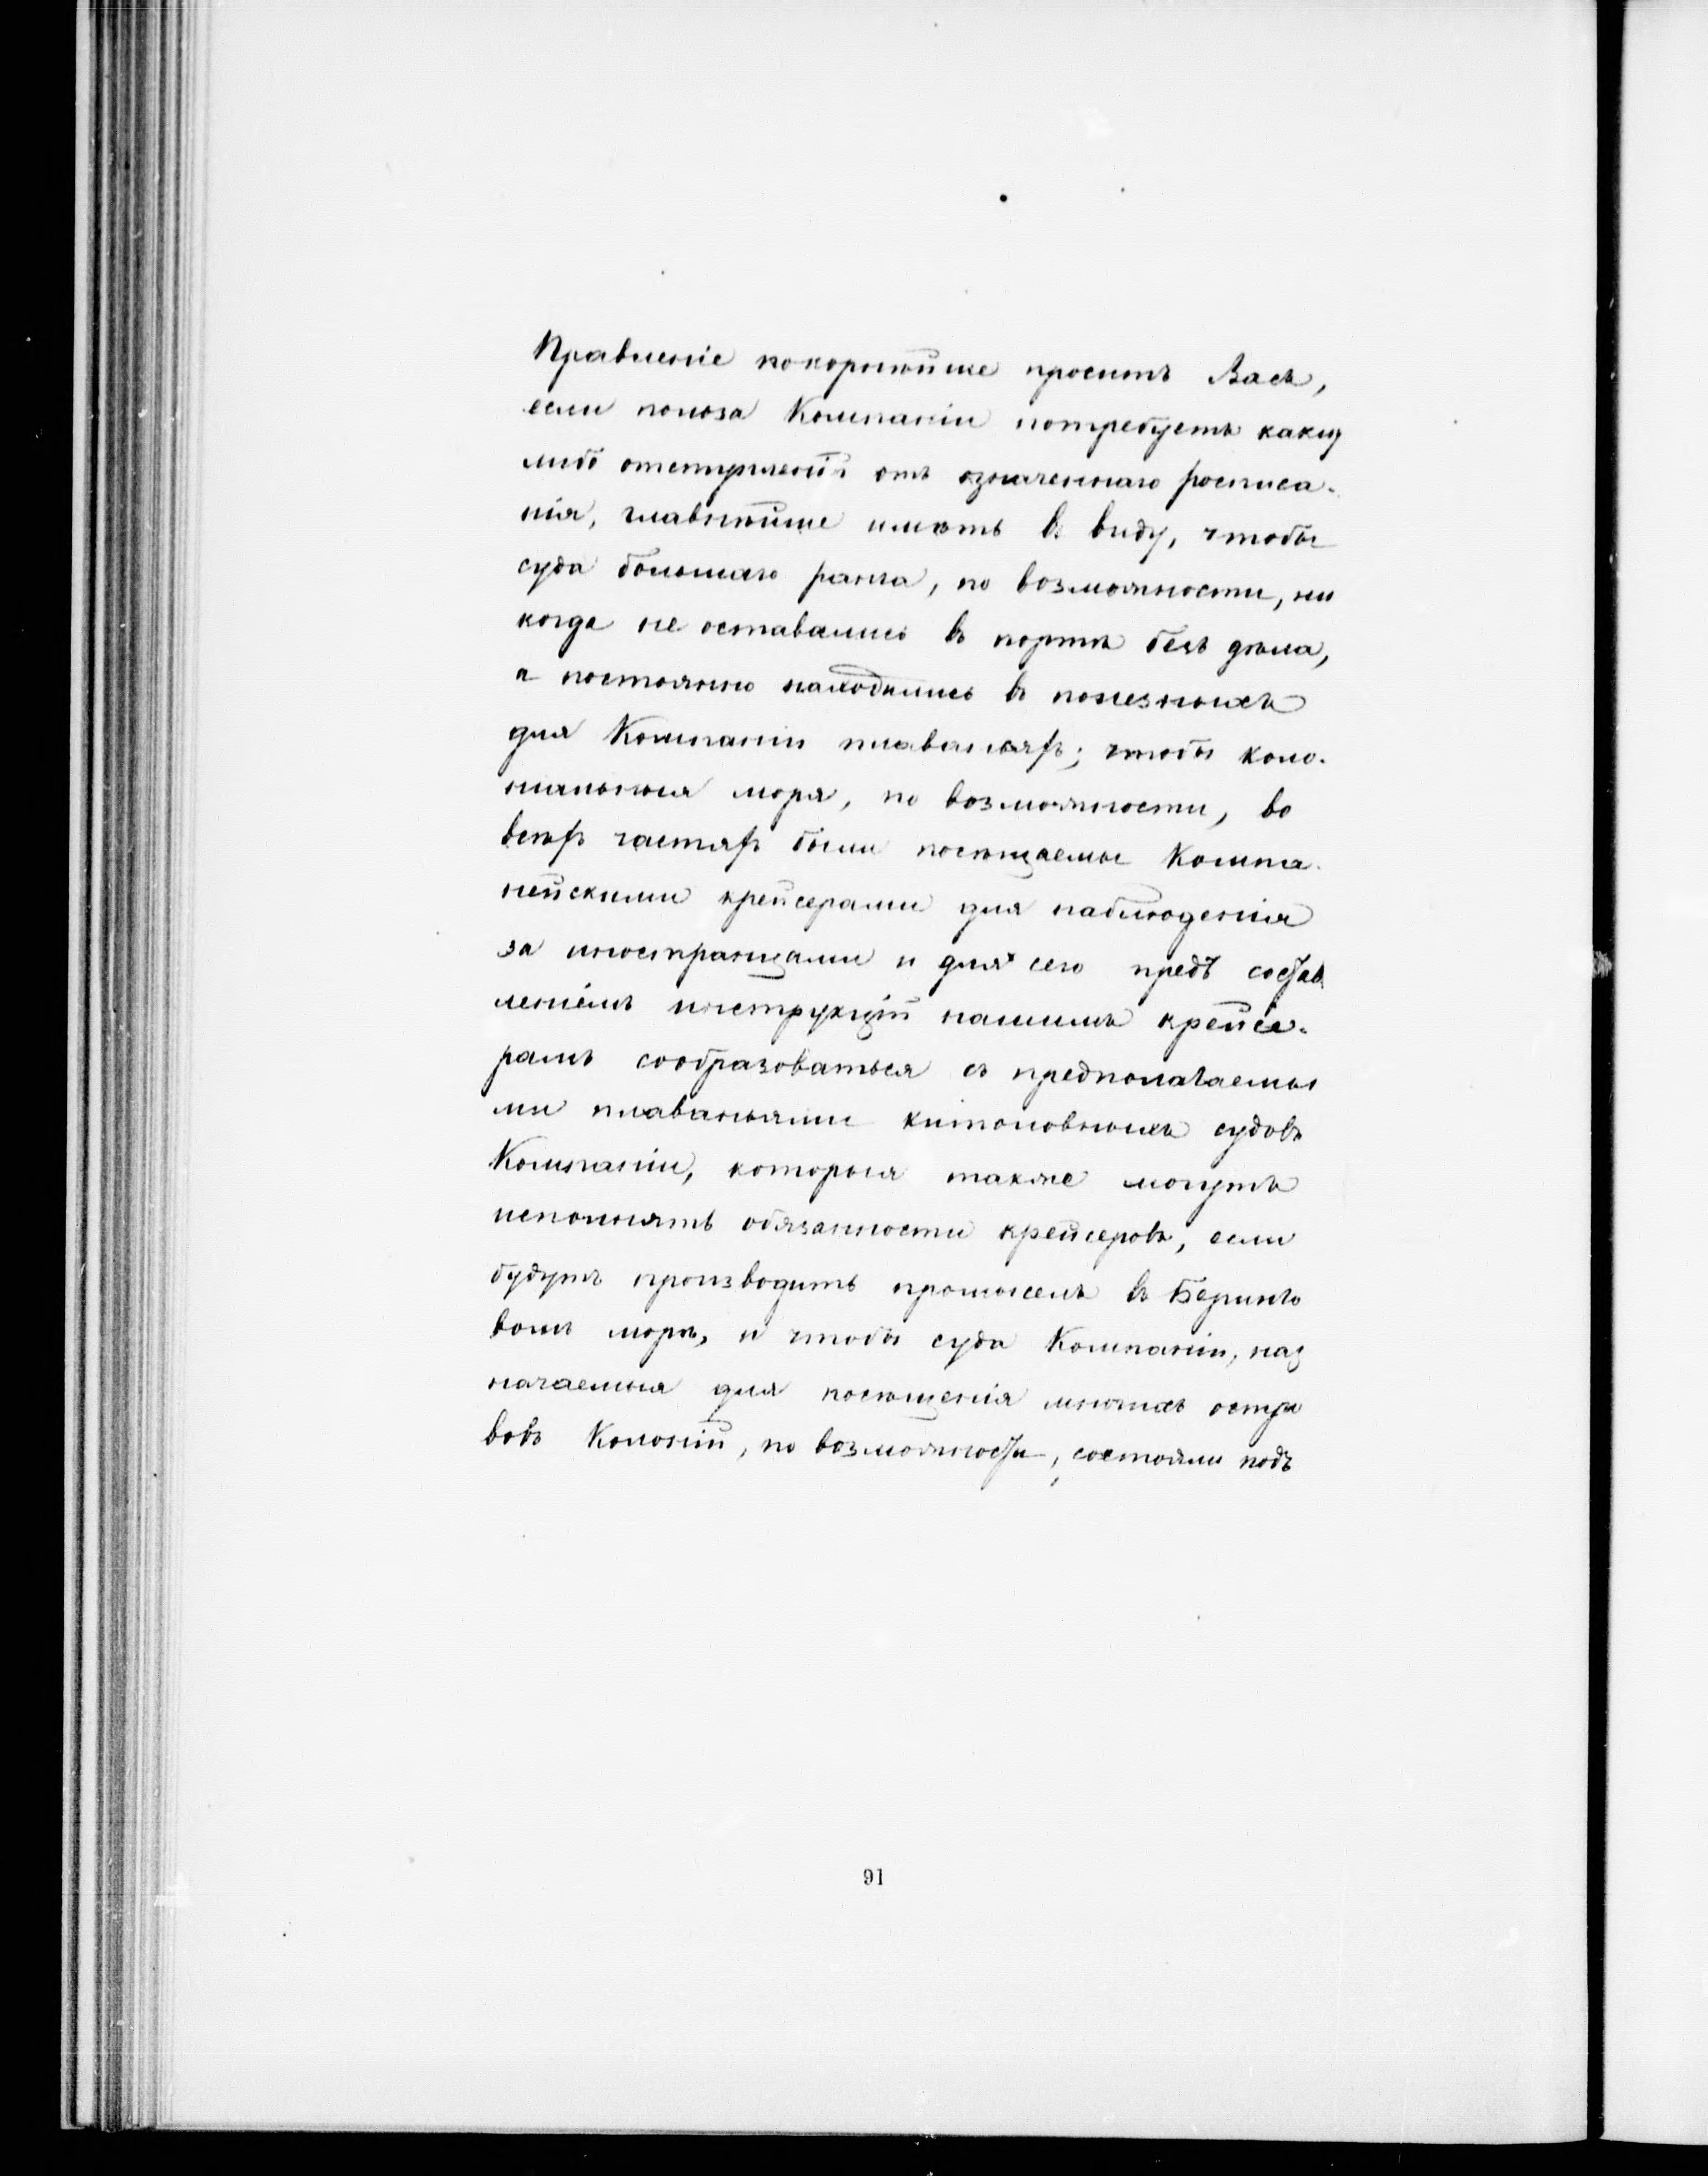 Правленіе покорнѣйше проситъ Васъ,
если польза Компаніи потребуетъ какихъ
либо отступленій отъ означеннаго росписа-
нія, главнѣйше имѣть въ виду, чтобы
суда большаго ранга, по возможности, ни
когда не оставались въ портѣ безъ дѣла,
а постоянно находились въ полезныхъ
для Компаніи плаваньяхъ; чтобы коло-
ніальныя моря, по возможности, во
всѣхъ частяхъ были посѣщаемы Компа-
нейскими крейсерами для наблюденія
за иностранцами и для сего предъ состав-
леніемъ инструкцій нашимъ крейсе-
рамъ сообразоваться съ предполагаемы
ми плаваньями китоловныхъ судовъ
Компаніи, которыя также могутъ
исполнять обязанности крейсеровъ, если
будутъ производить промыселъ въ Беринго
вомъ морѣ, и чтобы суда Компаніи, наз
начаемыя для посѣщенія многихъ остро
вовъ Колоній, по возможности, состояли подъ
91